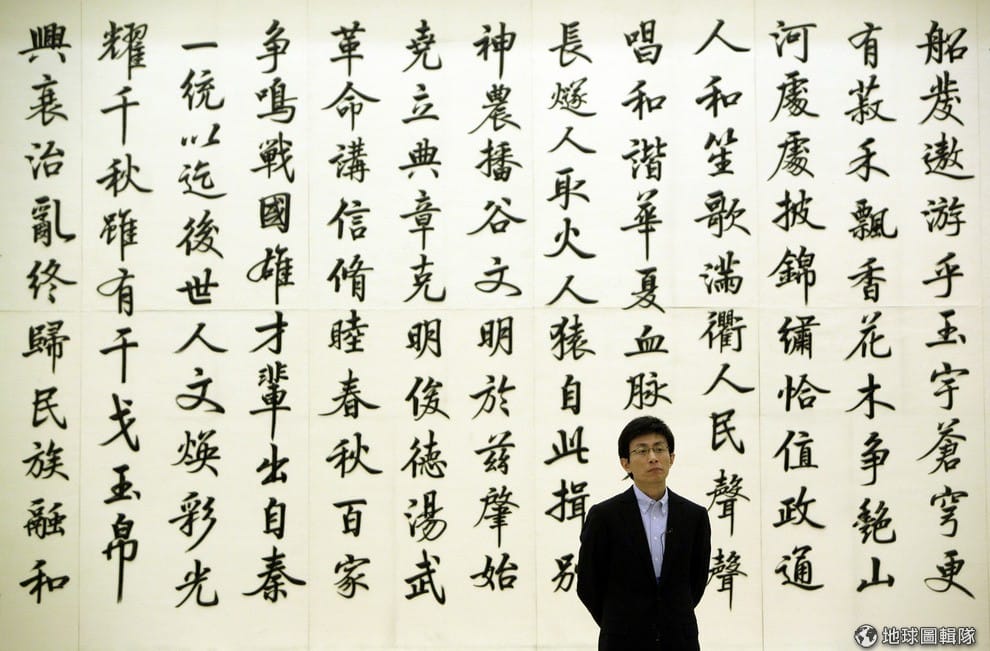 船發遨游乎玉宇蒼穹更
有菽禾飄香花木争艷山
河處處披錦繡恰值政通
人和笙歌滿衢人民聲聲
唱和諧華夏血脉
長燧人取火人猿自此揖别
神農播谷文明於兹肇始
堯立典章克明俊德湯武
革命講信脩睦春秋百家
争鳴戰國雄才輩出自秦
一統以迄後世人文焕彩光
耀千秋雖有干戈玉帛
興衰治亂終歸民族融和
地球圖輯隊